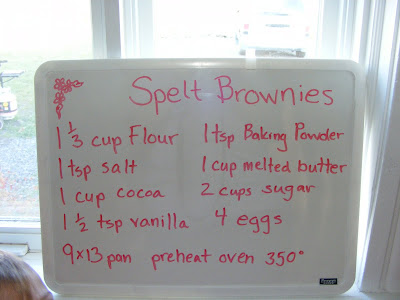 Spelt Brownies
1 1/3 cup Flour
1 tsp Baking Powder
1 tsp salt
1 cup melted butter
1 cup cocoa
2 cups sugar
1 1/2 tsp vanilla
4 eggs
9x13 pan preheat oven 350°